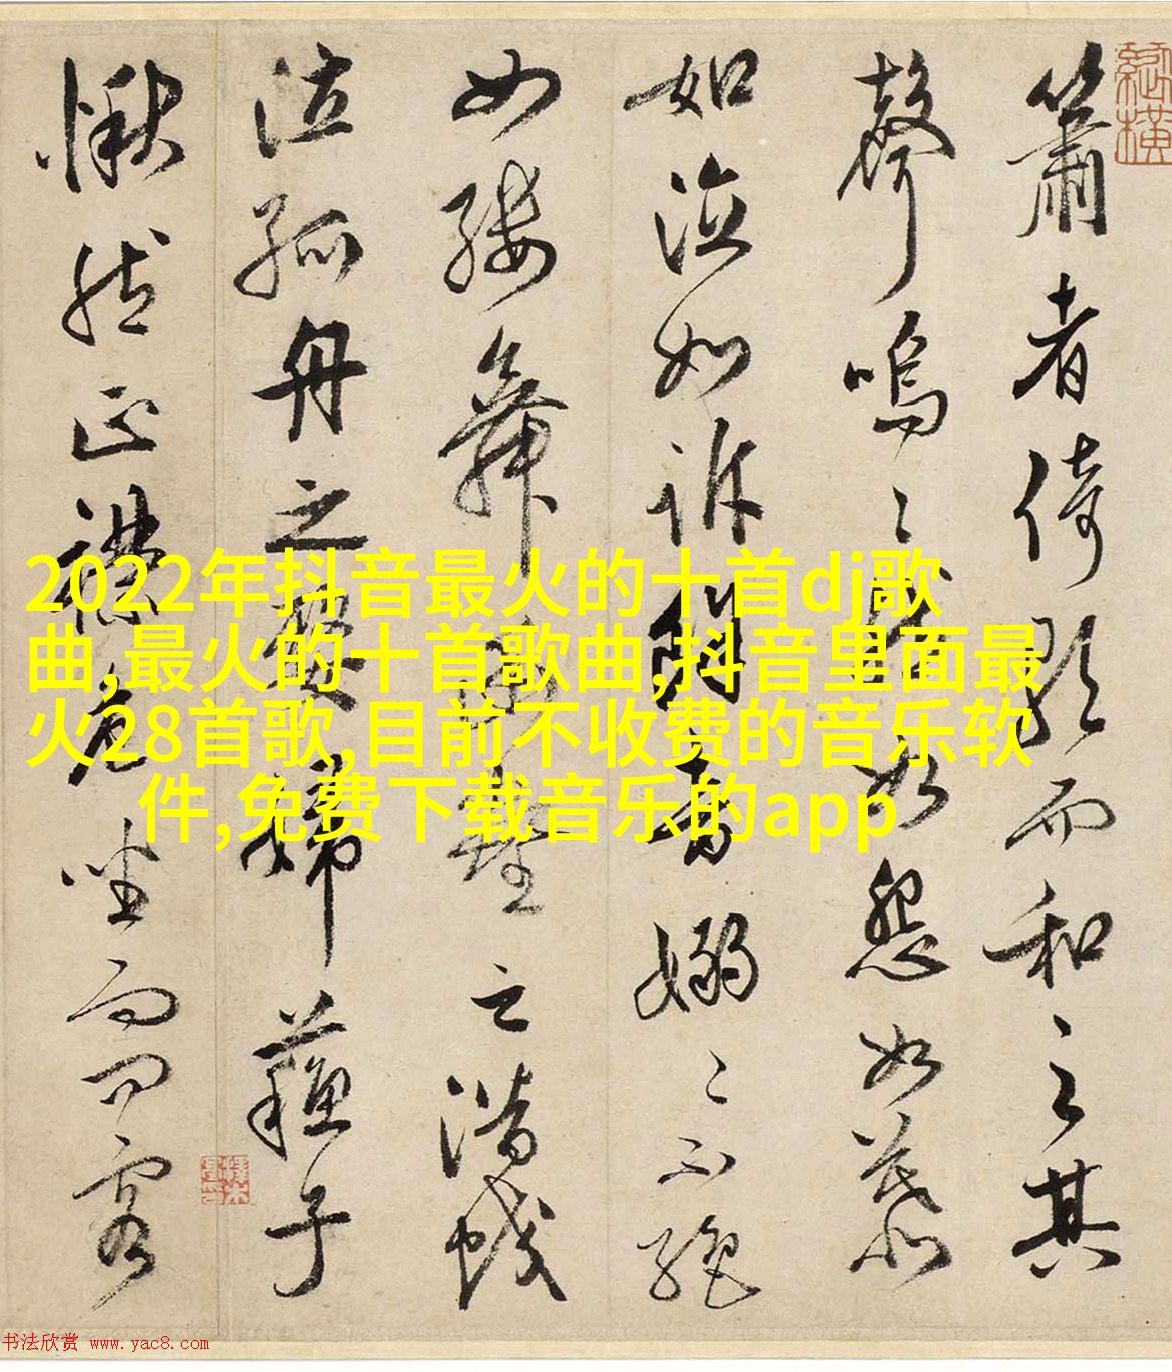 簫者倚歌而和之其
聲嗚〻然如怨如慕
如泣如訴餘音嫋〻不絕
如縷舞幽壑之潛蛟
泣孤舟之嫠婦蘇子
愀然正襟危坐而問客
2022年抖音最火的十首dj歌
曲,最火的十首歌曲,抖音里面最
火28首歌,目前不收费的音乐软
件,免费下载音乐的app
书法欣赏 www.yac8.com